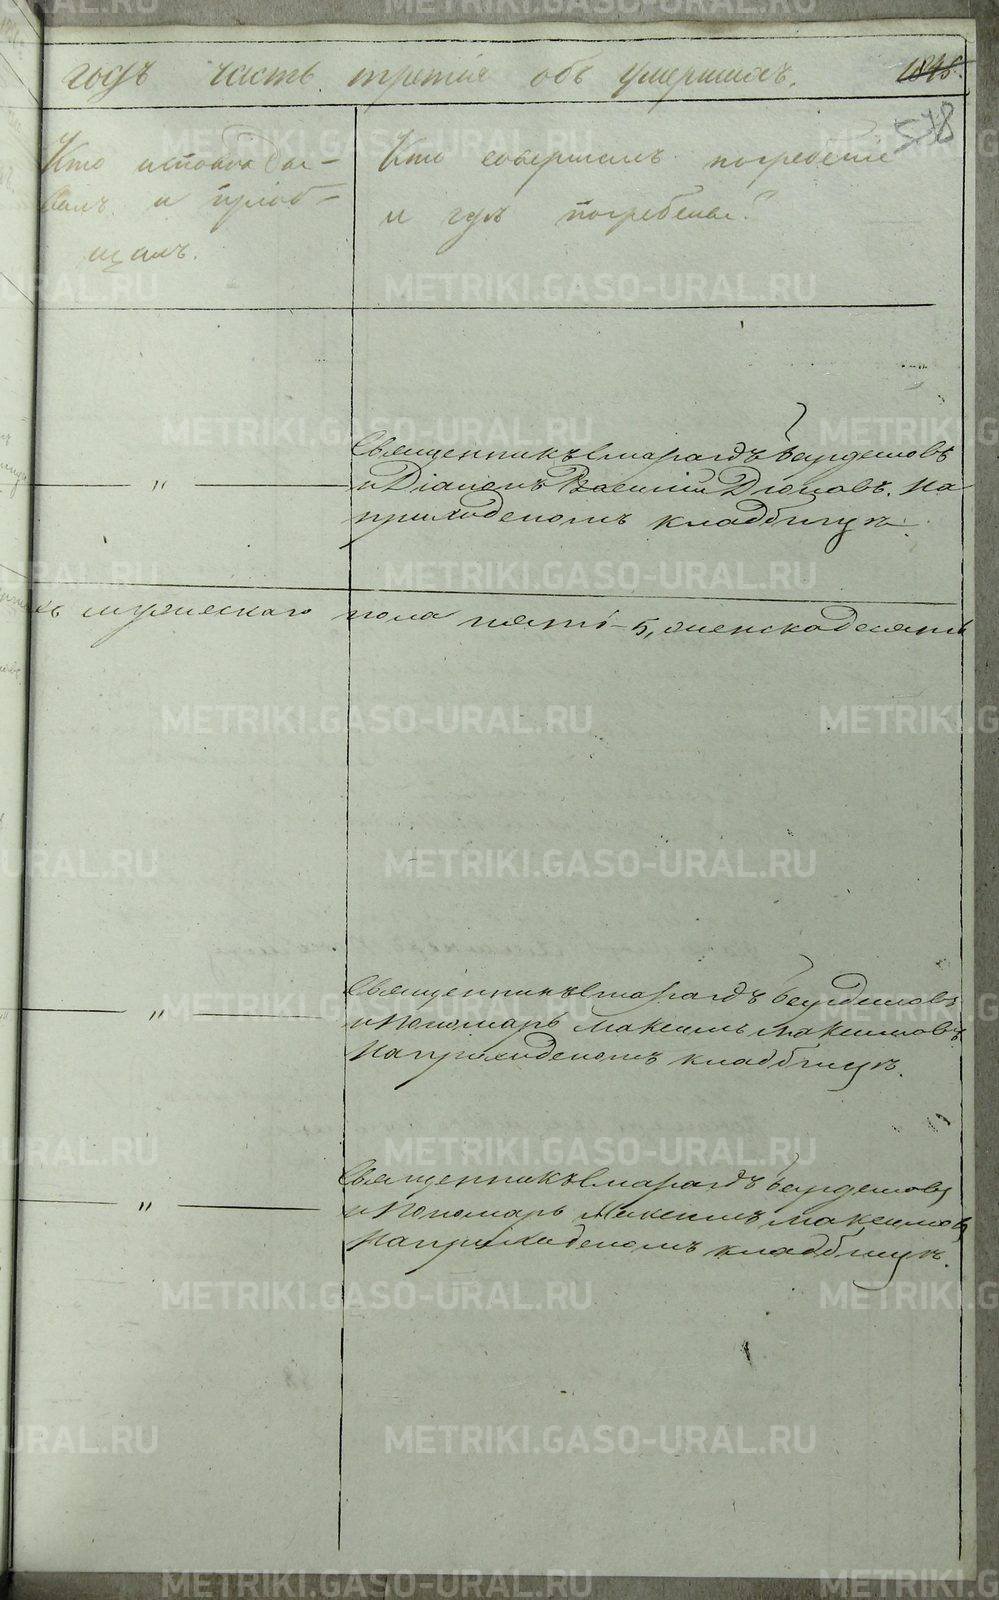 годъ часть третія объ умершихъ. 1848
578
Кто исповѣды-
валъ и пріоб-
щалъ.
Кто совершалъ погребеніе
и гдѣ погребены?
Священникъ Смарагдъ Бердемовъ
и Діаконъ Василій Діоновъ. На
приходскомъ кладбищѣ.
— " —
мужескаго пола пяти - 5, женска десять
Священникъ Смарагдъ
и Пономарь Максимъ Максимовъ
На приходскомъ кладбищѣ.
— " —
Священникъ Смарагдъ
и Пономарь Максимъ Максимовъ
На приходскомъ кладбищѣ.
— " —
METRIKI.GASO-URAL.RU